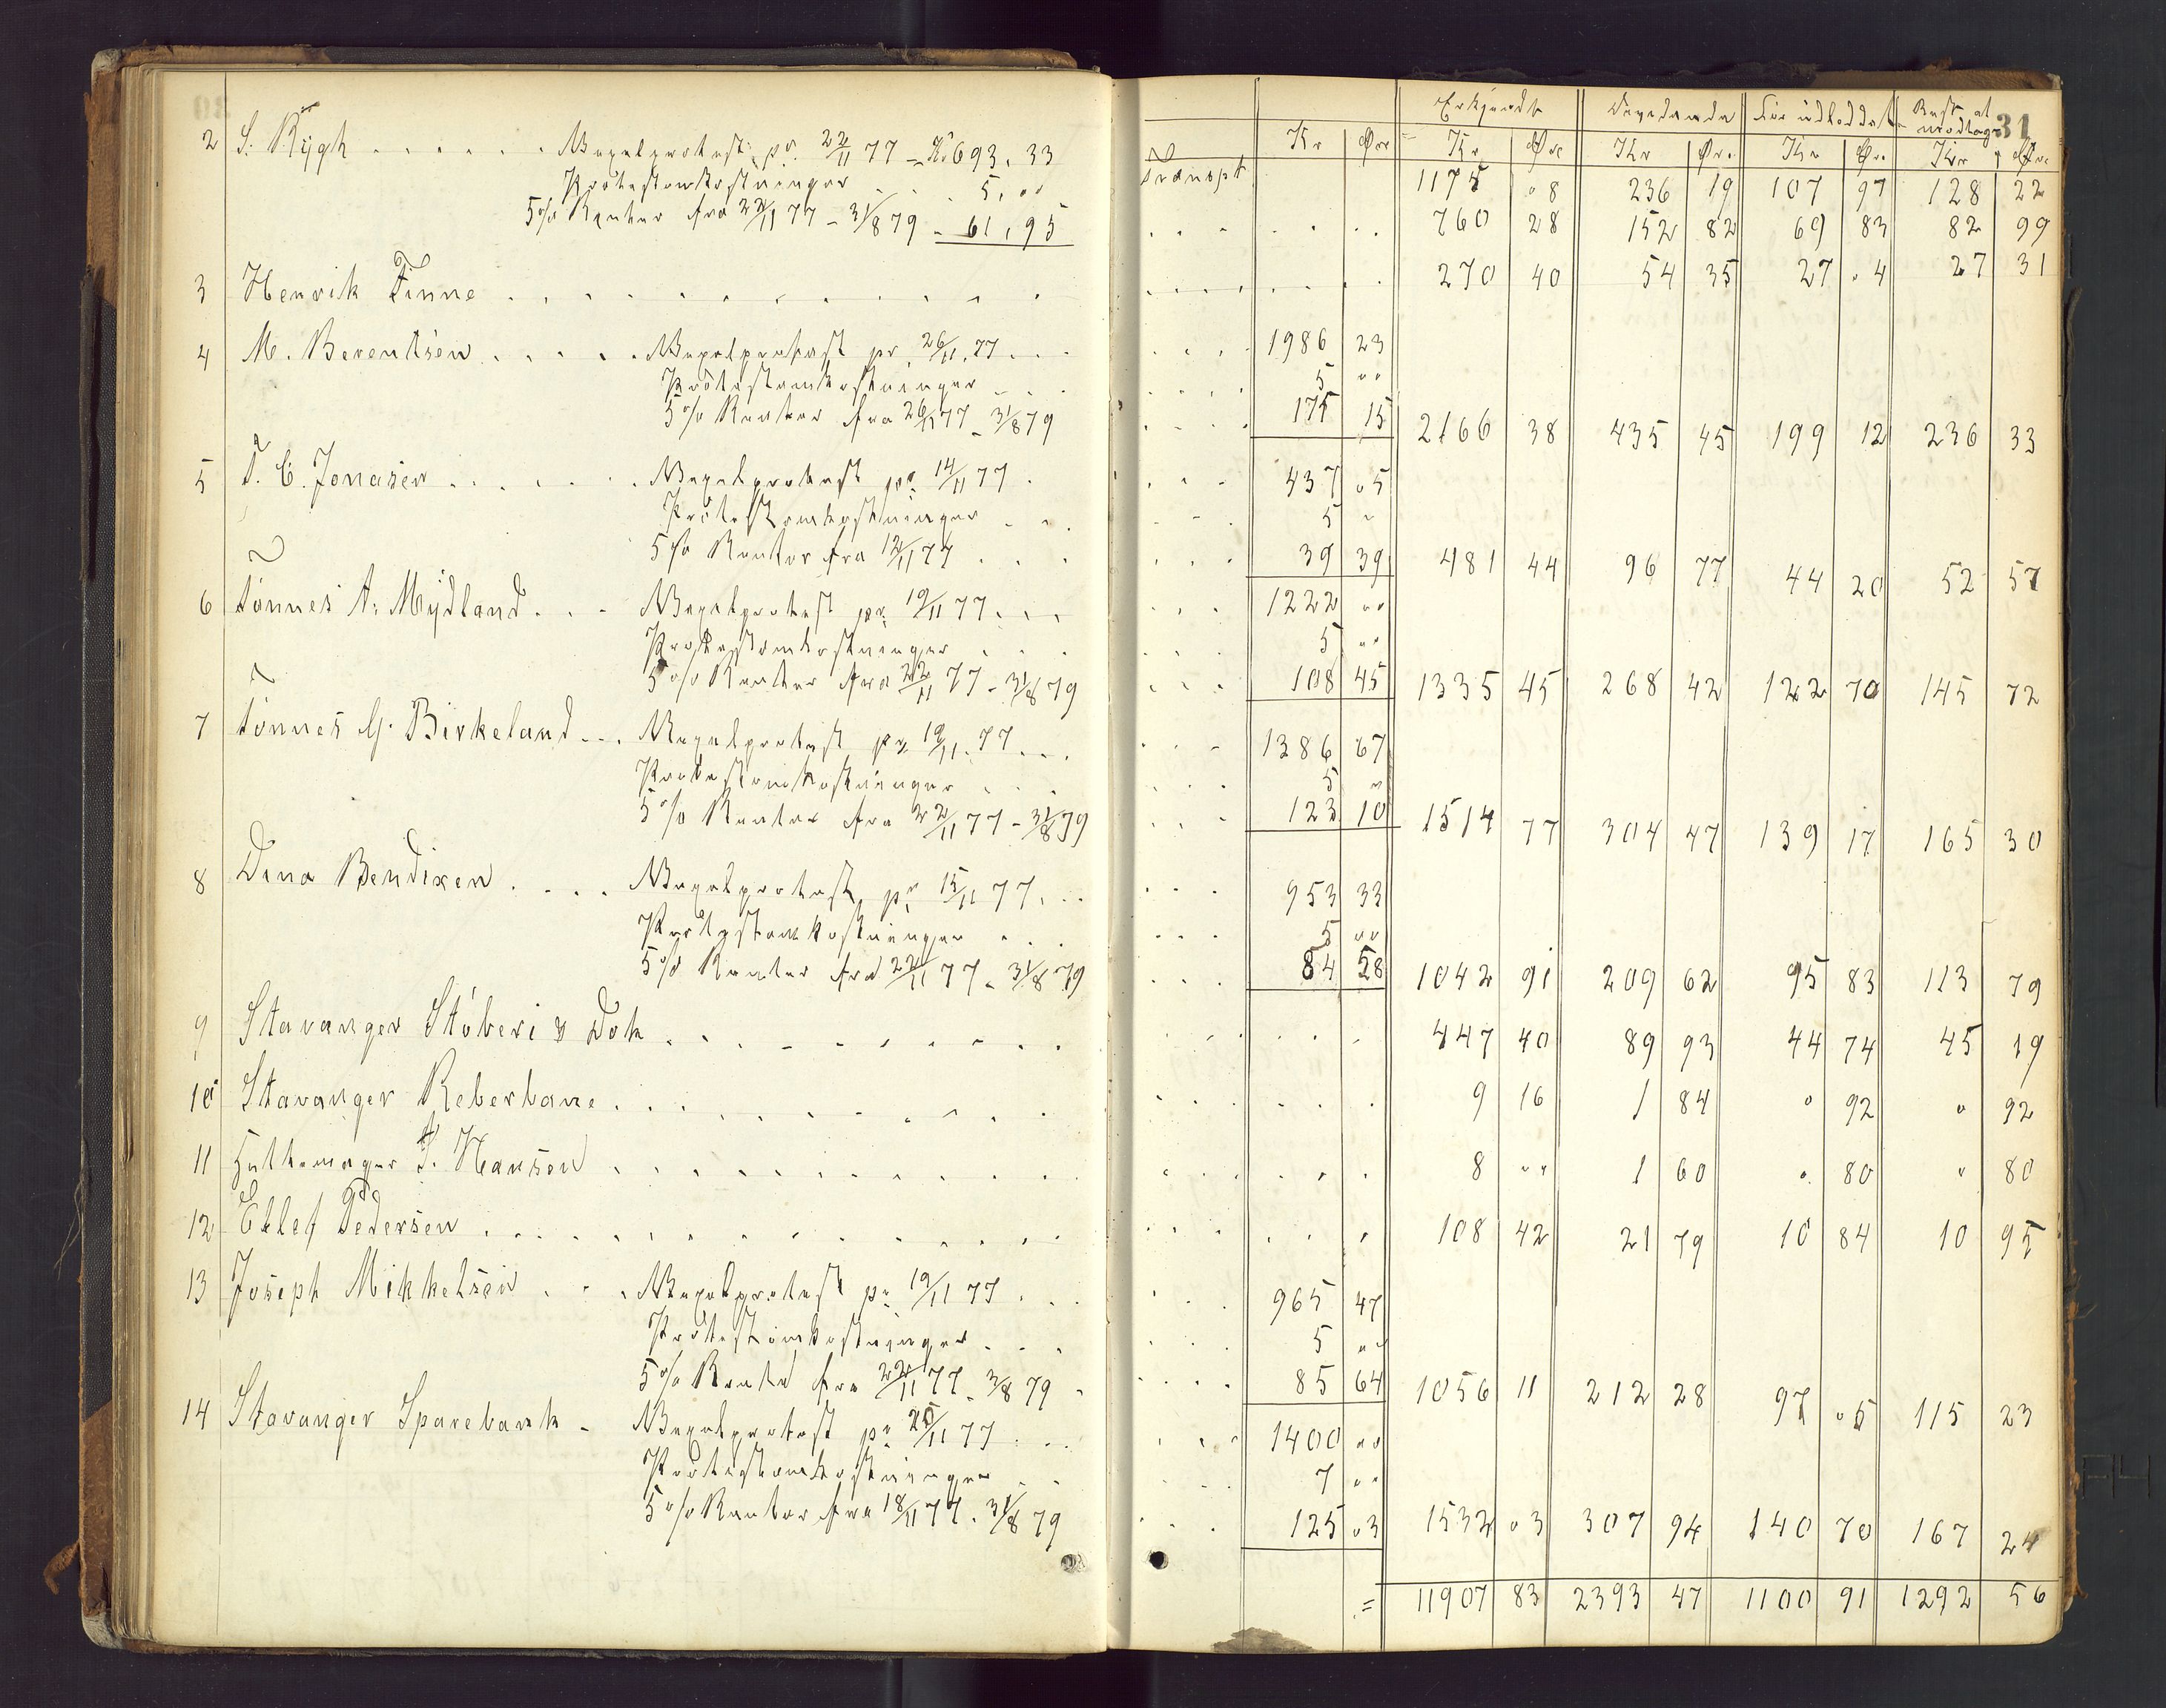 31
Erkjendt Dividende før udbeddelt Rest at modtage
Kr Øre Kr Øre Kr Øre Kr Øre Kr Øre
Transpt 1175 08 236 19 107 97 128 22
2 S. Rÿgh . . . . . . Vexelprotest pr. 22/11 77 - Kr 693. 33
Protestomkostninger . . 5. 00
5 % Renter fra 22/11 77 - 31/8 79 - 61. 95 760 28 152 82 69 83 82 99
3 Henrik Finne . . . . . . . . 270 40 54 35 27 04 27 31
4 M. Berentsen . . . . . Vexelprotest pr. 26/11 77 . . . 1986 23
Protestomkostninger . . . 5 00
5 % Renter fra 26/11 77 - 31/8 79 175 15 2166 38 435 45 199 12 236 33
5 T. C. Jonasen . . . . . . Vexelprotest pr. 14/11 77 . 437 05
Protestomkostninger . . . 5 "
5 % Renter fra 12/11 77 . . . 39 39 481 44 96 77 44 20 52 57
6 Tønnes A. Mÿdland . . . Vexelprotest pr. 19/11 77 . . . 1222 00
Protestomkostninger . . . 5 00
5 % Renter fra 22/11 77 - 31/8 79 108 45 1335 45 268 42 122 70 145 72
7 Tønnes G. Birkeland . . . Vexelprotest pr. 19/11 77 . . . 1386 67
Protestomkostninger . . . 5 "
5 % Renter fra 22/11 77 - 31/8 79 123 10 1514 77 304 47 139 17 165 30
8 Dina Bendixen . . . . Vexelprotest pr. 15/11 77 . . . 953 33
Protestomkostninger . . . 5 00
5 % Renter fra 22/11 77 - 31/8 79 84 58 1042 91 209 62 95 83 113 79
9 Stavanger Støberi & Dok . . . . . . . . 447 40 89 93 44 74 45 19
10 Stavanger Reberbane . . . . . . . . 9 16 1 84 " 92 " 92
11 Hattemager J. Hansen . . . . . . . . 8 00 1 60 " 80 " 80
12 Ellef Pedersen . . . . . . . . 108 42 21 79 10 84 10 95
13 Joseph Mikkelsen . . . Vexelprotest pr. 19/11 77 . . . 965 47
Protestomkostninger . . . 5 00
5 % Rente fra 22/11 77 - 31/8 79 . 85 64 1056 11 212 28 97 05 115 23
14 Stavanger Sparebank - Vexelprotest pr. 25/11 77 . . . 1400 00
Protestomkostninger . . 7 00
5 % Renter fra 18/11 77 - 31/8 79 125 03 1532 03 307 94 140 70 167 24
= 11907 83 2393 47 1100 91 1292 56